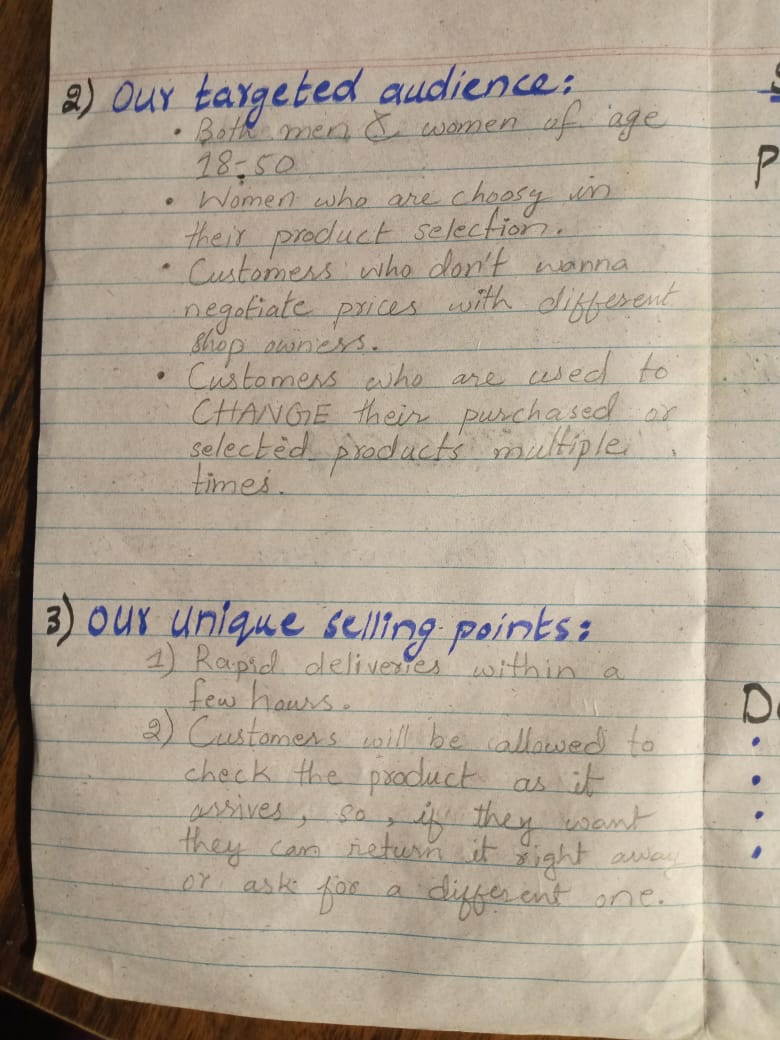 2) Our targeted audience:
• Both men & women of age
18-50
• Women who are choosy in
their product selection.
• Customers who don't wanna
negotiate prices with different
shop owners.
• Customers who are used to
CHANGE their purchased or
selected products multiple
times.
3) Our unique selling points:
1) Rapid deliveries within a
few hours.
2) Customers will be allowed to
check the product as it
arrives, so, if they want
they can return it right away
or ask for a different one.
S
P
D
•
•
•
•